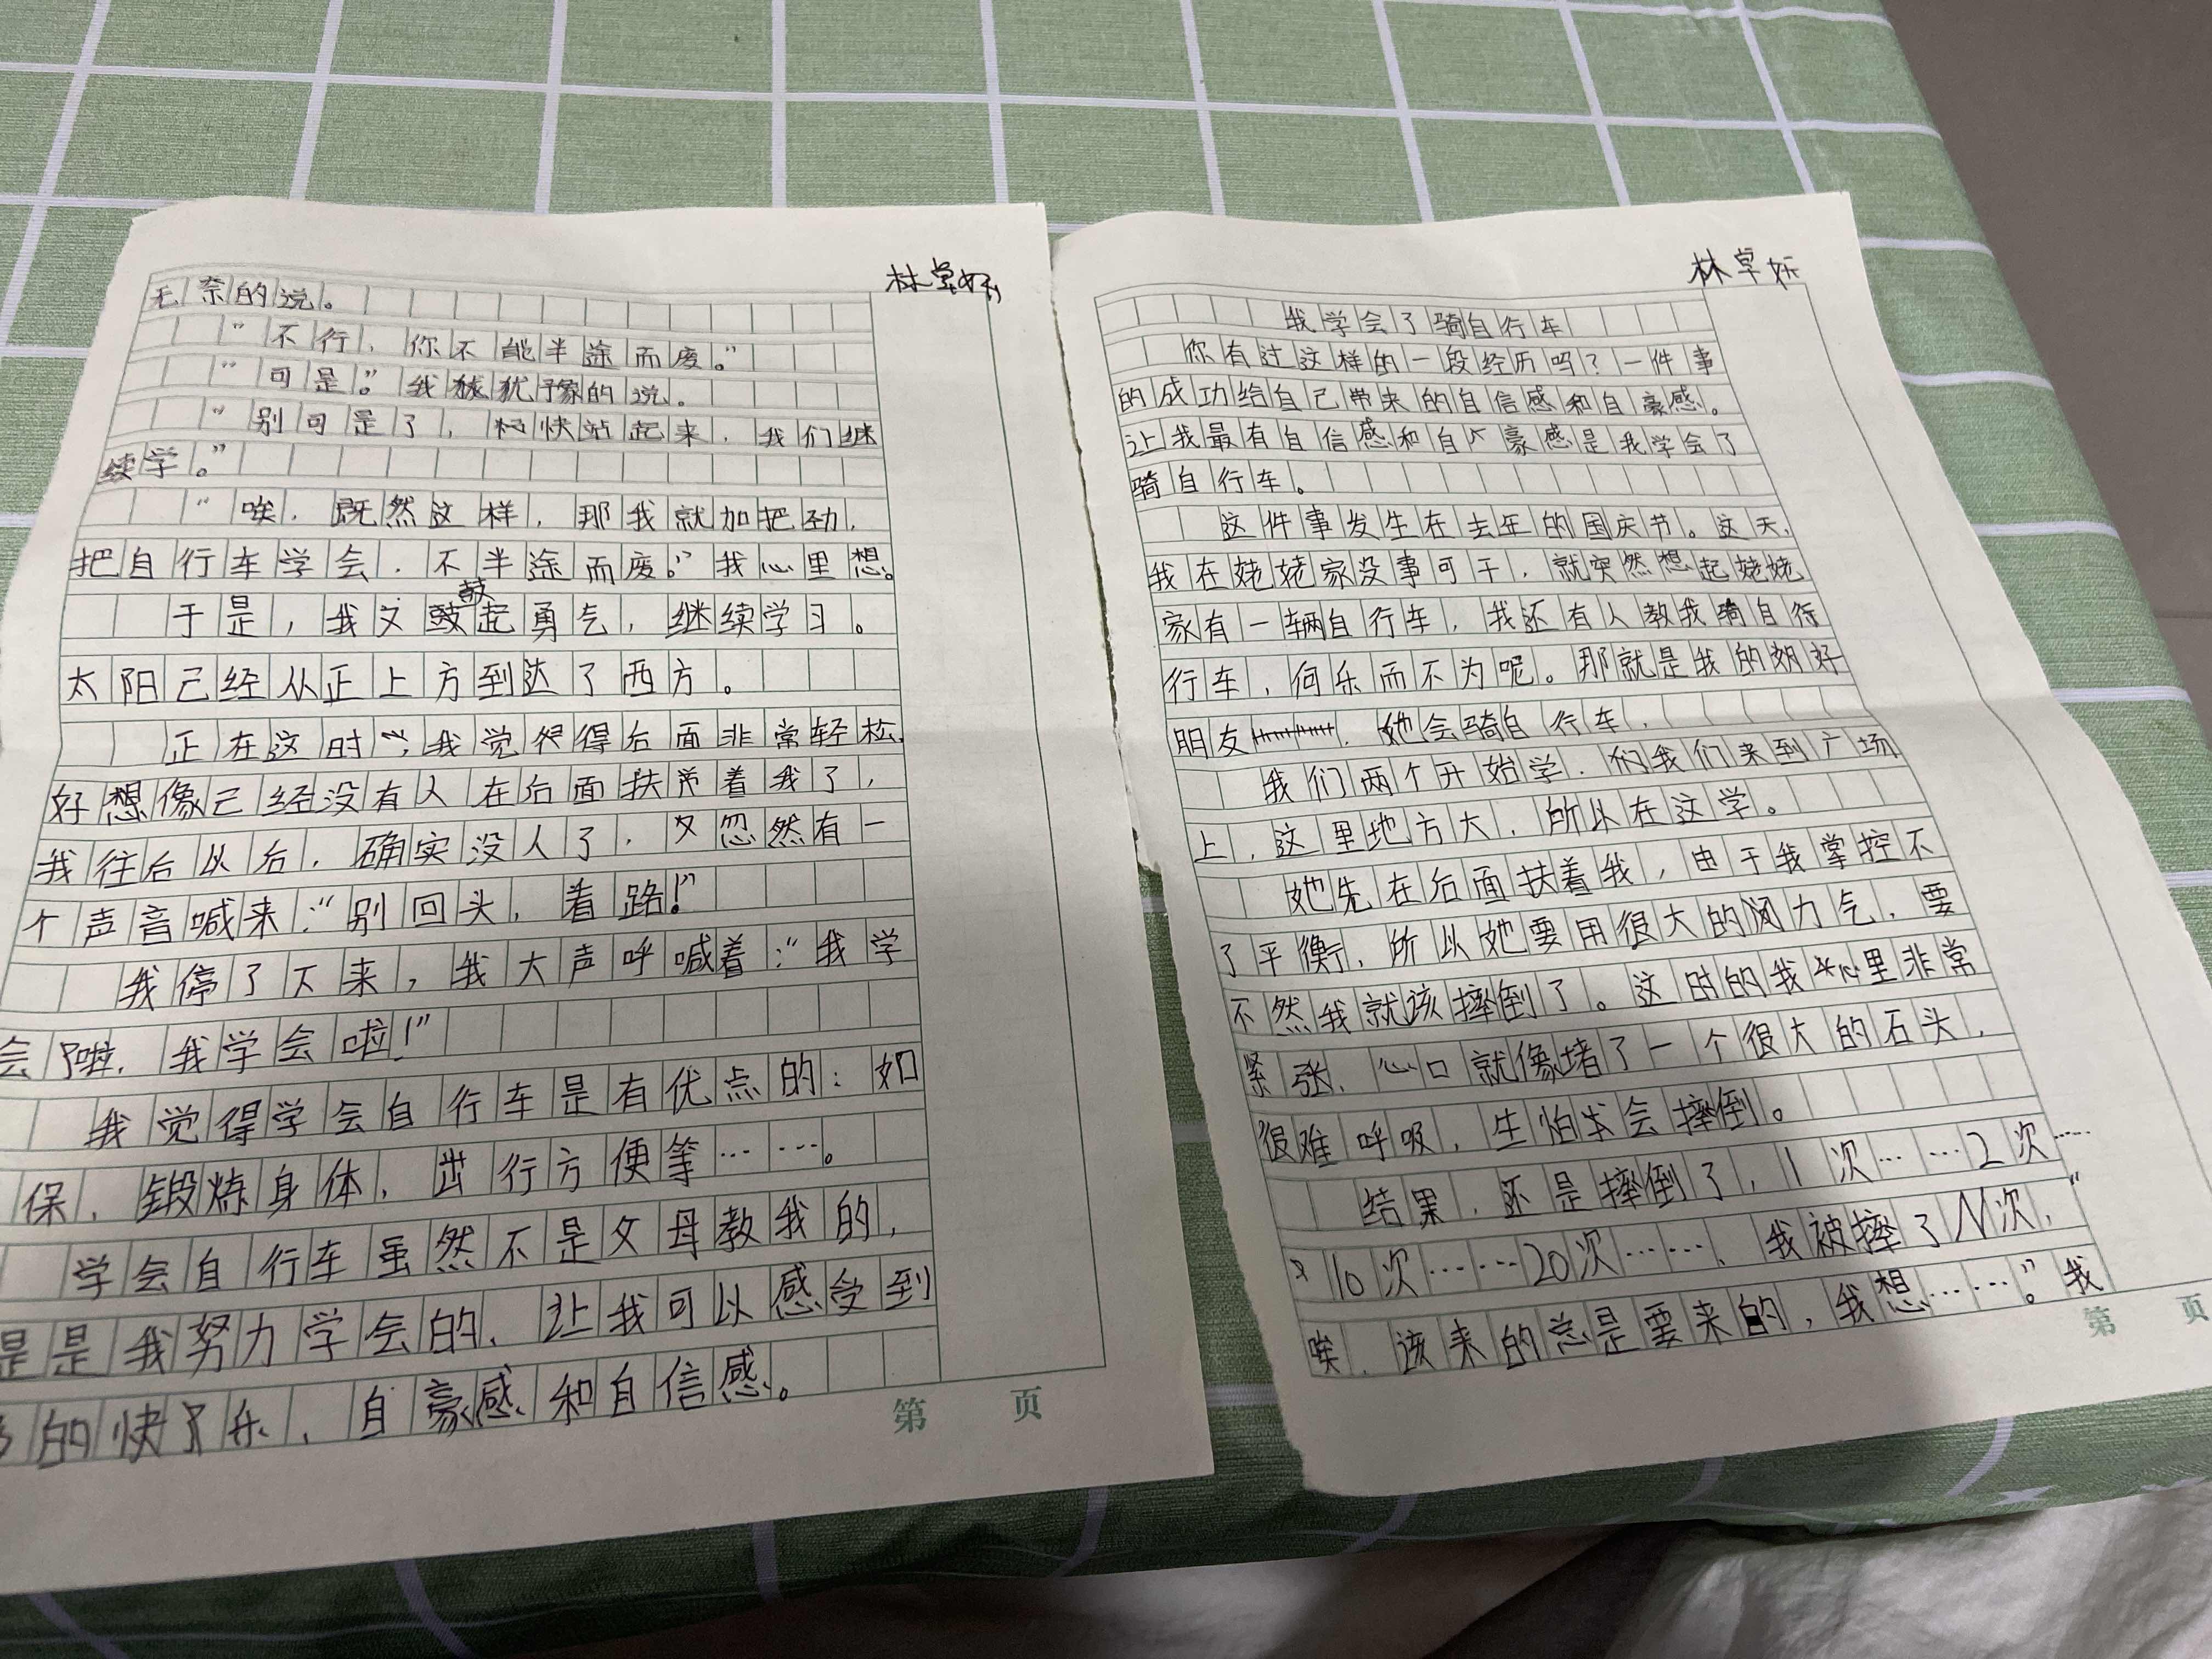 林卓妘
我学会了骑自行车
你有过这样的一段经历吗?一件事
的成功给自己带来的自信感和自豪感。
让我最有自信感和自豪感是我学会了
骑自行车。
这件事发生在去年的国庆节。这天,
我在姥姥家没事可干,就突然想起姥姥
家有一辆自行车,我还有人教我骑自行
行车,何乐而不为呢。那就是我的好
朋友,她会骑自行车,
我们两个开始学,我们来到广场
上,这里地方大,所以在这学。
她先在后面扶着我,由于我掌控不
了平衡,所以她要用很大的力气,要
不然我就该摔倒了。这时的我心里非常
紧张,心口就像堵了一个很大的石头,
很难呼吸,生怕会摔倒。
结果,还是摔倒了,1次……2次……
10次……20次……,我被摔了N次,“
唉,该来的总是要来的,我想……。”我
第 页
林卓妘
无奈的说。
“不行,你不能半途而废。”
“可是。”我犹豫的说。
“别可是了,快站起来,我们继
续学。”
“唉,既然这样,那我就加把劲,
把自行车学会,不半途而废。”我心里想。
于是,我又鼓起勇气,继续学习。
太阳已经从正上方到达了西方。
正在这时,我觉得后面非常轻松,
好像已经没有人在后面扶着我了,
我往后以后,确实没人了,又忽然有一
个声音喊来:“别回头,看路!”
我停了下来,我大声呼喊着:“我学
会啦,我学会啦!”
我觉得学会自行车是有优点的:如
保,锻炼身体,出行方便等……。
学会自行车虽然不是父母教我的,
是是我努力学会的,让我可以感受到
的快乐,自豪感和自信感。
第 页